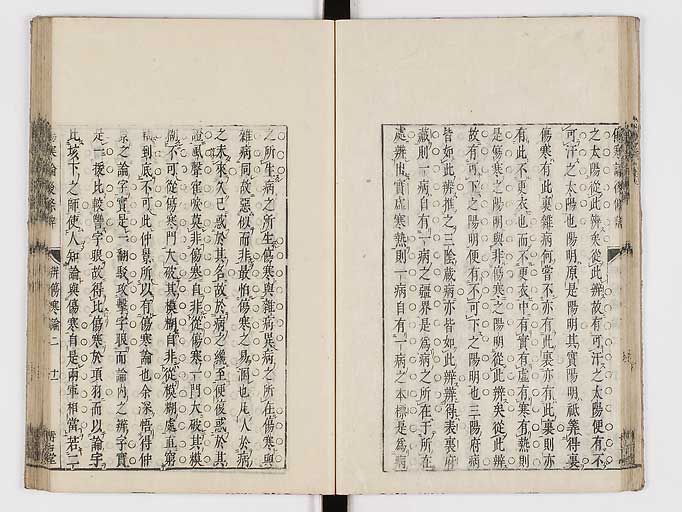 之太陽從此辨矣從此辨故有可汗之太陽便有不
可汗之太陽也陽明原是陽明其實陽明祗算得裏
傷寒有此裏雜病何嘗不亦有此裏亦有此裏則亦
有此不更衣也而不更衣中有實有虛有寒有熱則
是傷寒之陽明與非傷寒之陽明從此辨矣從此辨
故有可下之陽明便有不可下之陽明也三陽府病
皆如此辨推之三陰藏病亦皆如此辨辨得表裏府
藏則一病自有一病之疆界是為病之所在于所在
處辨出實虛寒熱則一病自有一病之本標是為病
之所生病之所生傷寒與雜病異病之所在傷寒與
雜病同故惡似而非最怕傷寒之易溷也凡人於病
之未來久已惑於其名故於病之纔至便復惑於其
證風聲隹唳莫非傷寒自非從傷寒一門大破其模
糊不可從傷寒門大破其模糊自非從模糊處直窮
到底不可此仲景所以有傷寒論也余深悟得仲
景之論字實是一翻駁攻擊字眼而論內之辨字實
是一援比較讐字眼故得比傷寒於項羽而以論字
此垓下之師使人知論與傷寒自是兩軍相當若二
辨傷寒論二 十一